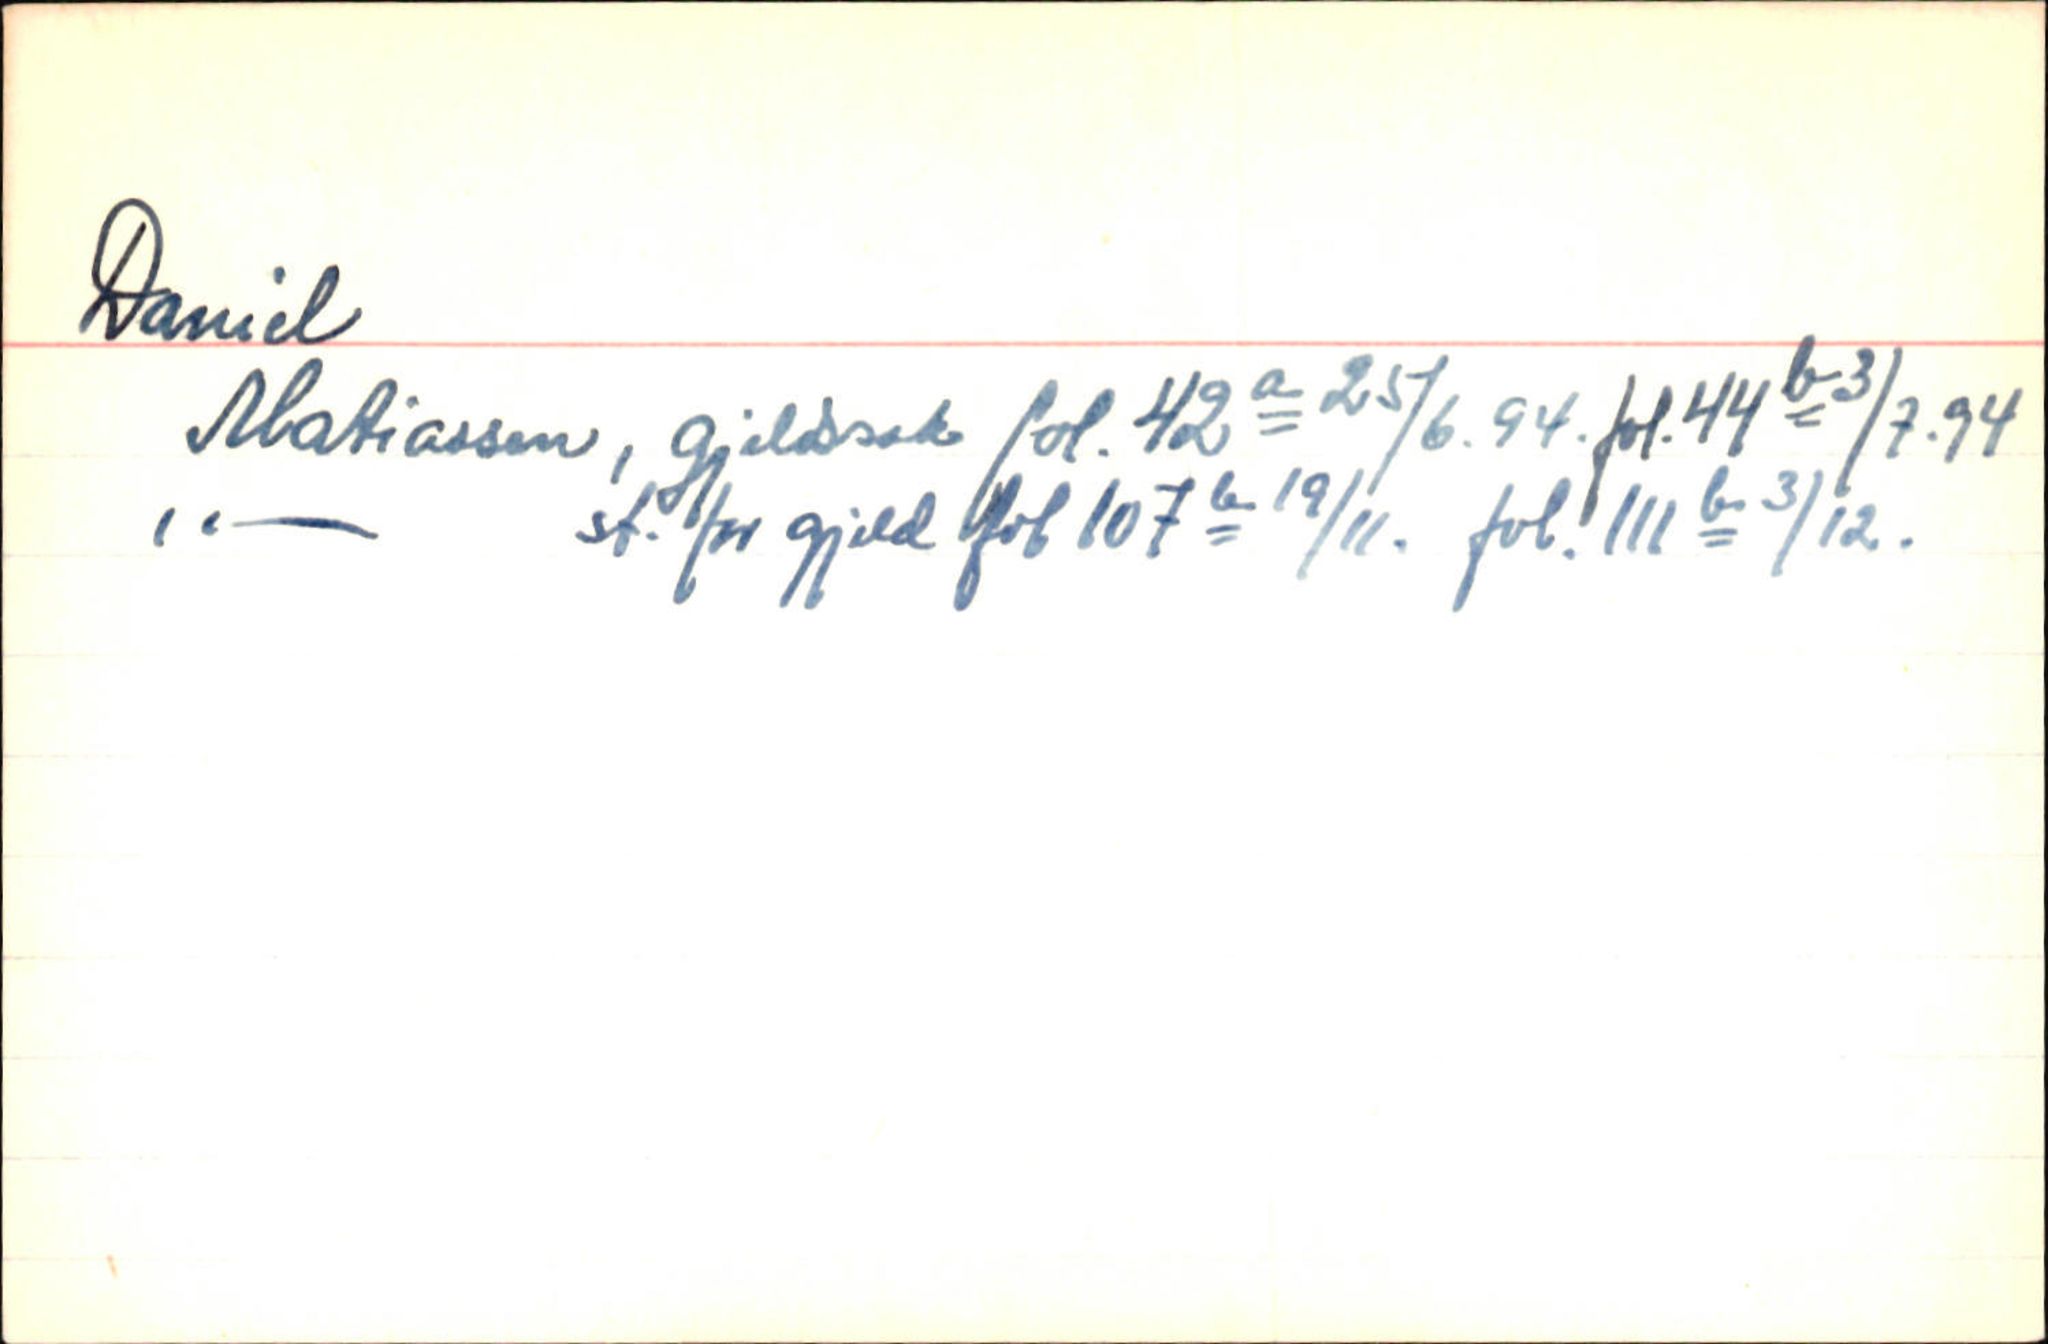 Daniel
Matiassen, gjeldssak fol. 42 a 25/6. 94. fol. 44 b 3/7. 94
" — st. for gjeld fol 107 b 19/11. fol. 111 b 3/12.